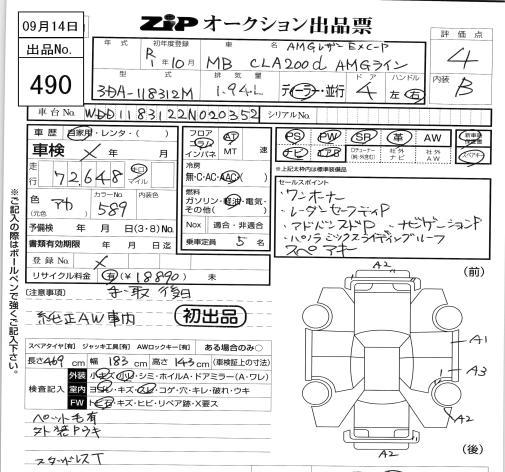 09月14日
出品No.
490
ZIP オークション出品票
評価点
4
内装
B
年式
初年度登録
R1年10月
車名
AMGレザーEXC-P
MB CLA200d AMGライン
型式
3DA-118312M
排気量
1.94L
ディーラー・並行
ドア
4
ハンドル
左 右
車台No.
WDD1183122N020352
シリアルNo.
車歴 自家用・レンタ・( )
車検 × 年 月
走行
72,648
キロ
マイル
色
(元色 )
アカ
カラーNo.
589
内装色
予備検 年 月 日(3・8)No.
書類有効期限 年 月 日迄
登録No. ×
リサイクル料金 有(¥18890) 未
フロア
コラム
インパネ
AT
MT 速
冷房
無・C・AC・AAC
燃料
ガソリン・軽油・電気・
その他( )
Nox 適合・非適合
乗車定員 5 名
PS PW SR 革 AW
新車時保証書
ナビ エアB
社外ナビ
社外AW
スペアキー
※上記太枠内は標準装備品
セールスポイント
・ワンオーナー
・レーダーセーフティP
・アドバンスドP ・ナビゲーションP
・パノラミックスライディングルーフ
スペアキー
注意事項
手、取 後日
純正AW車内
初出品
スペアタイヤ[有] ジャッキ工具[有] AWロックキー[有] ある場合のみ○
長さ 469 cm 幅 183 cm 高さ 143 cm (車検証上の寸法)
検査記入
外装 小キズ・小凹・シミ・ホイルA・ドアミラー(A・ワレ)
室内 ヨゴレ・キズ・スレ・コゲ・穴・キレ・破れ・ウキ
FW トビキズ・キズ・ヒビ・リペア跡・X要ス
ペット毛有
外装Pウキ
スタッドレスT
A2
(前)
A1
A3
A2
A2
(後)
※ご記入の際はボールペンで強くご記入下さい。